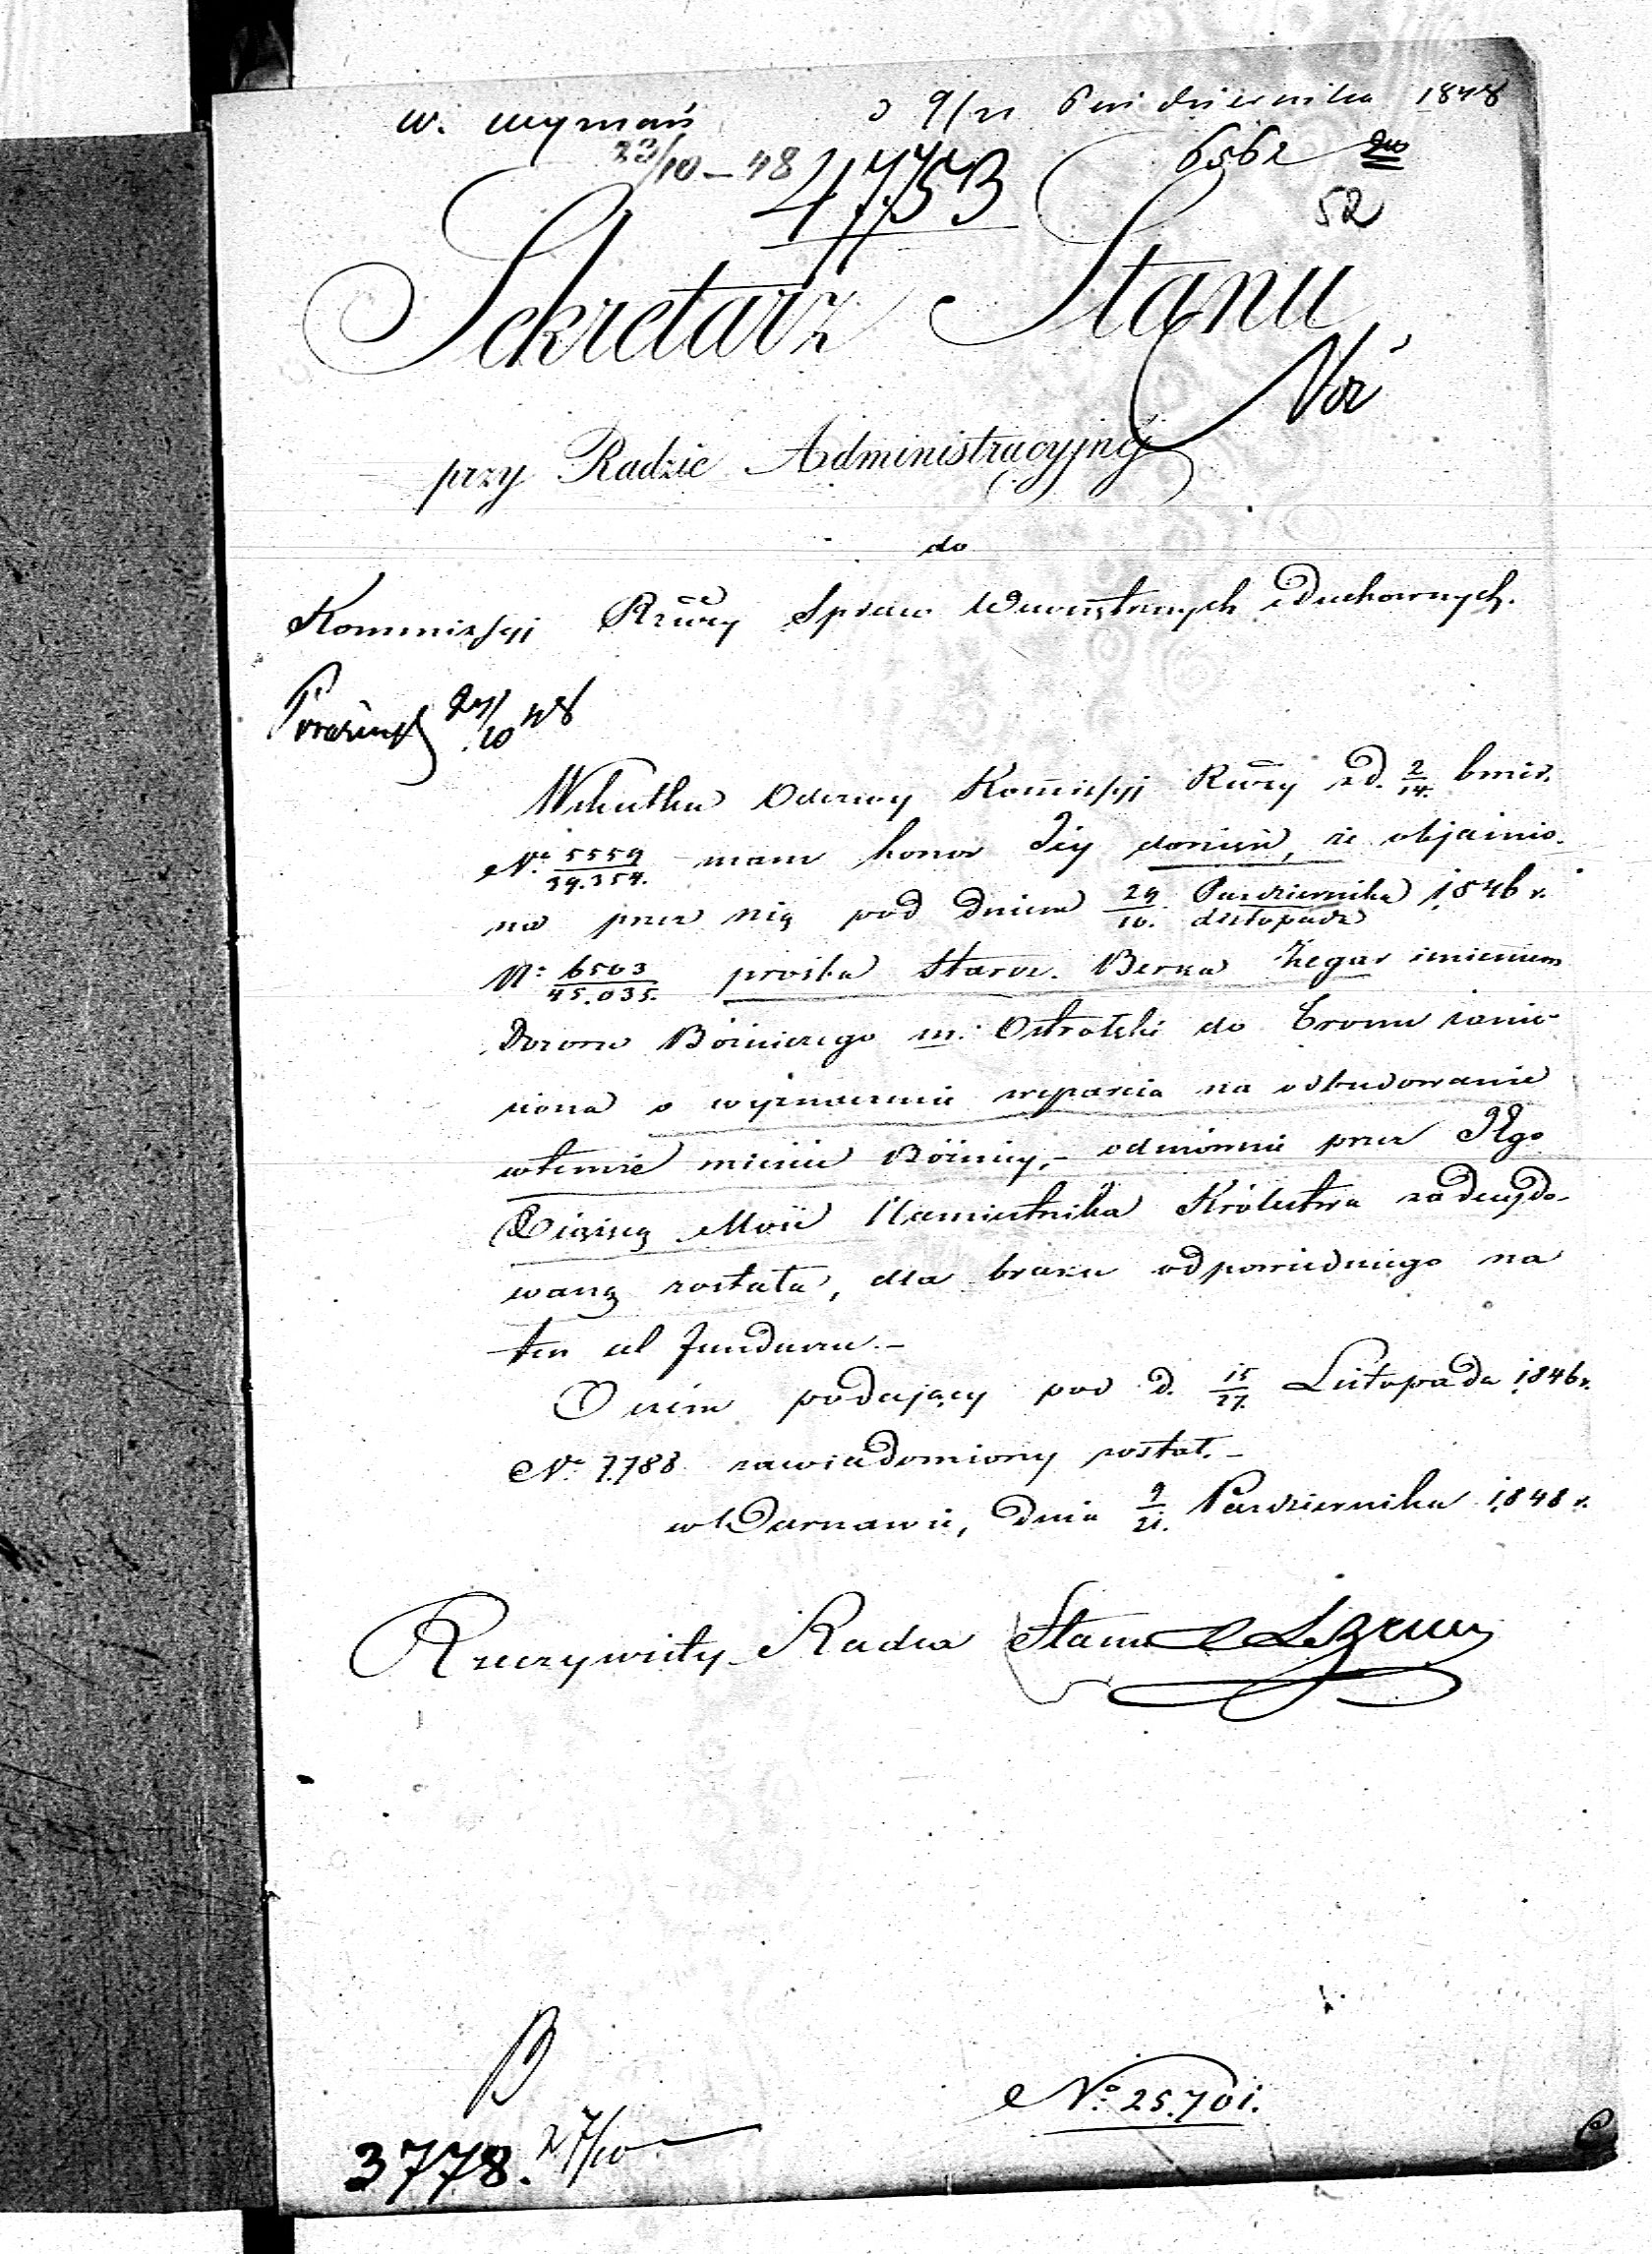 W. wyznań d 9/21 Października 1848
23/10 – 48 4753 6562
52
Sekretarz Stanu
przy Radzie Administracyjnéj
do
Kommissyi Rzwéy Spraw Wewnętrznych i Duchownych.
27/10 48
Wskutku Odezwy Kommissyi Rzwéy z d. 2/14. b mies.
No 5559/39.354. mam honor Jéy donieść, że objaśnio-
na przez nią pod dniem 29 Października/10. Listopada 1846 r.
No 6503/45.035. prośba Staroz. Berka Zegar imieniem
Dozoru Bóżniczego m. Ostrołęki do Tronu zanie-
siona o wyznaczenie wsparcia na odbudowanie
w temże mieście Bóżnicy, – odmównie przez JO go
Xięcia Mość Namiestnika Królestwa zadecydo-
waną została, dla braku odpowiedniego na
ten cel funduszu. –
O czém podający pod d. 15/27. Listopada 1846 r.
No 7.788 zawiadomiony został. –
w Warszawie, dnia 9/21. Października 1848 r.
Rzeczywisty Radca Stanu
B
3778. 27/10
No 25.701.